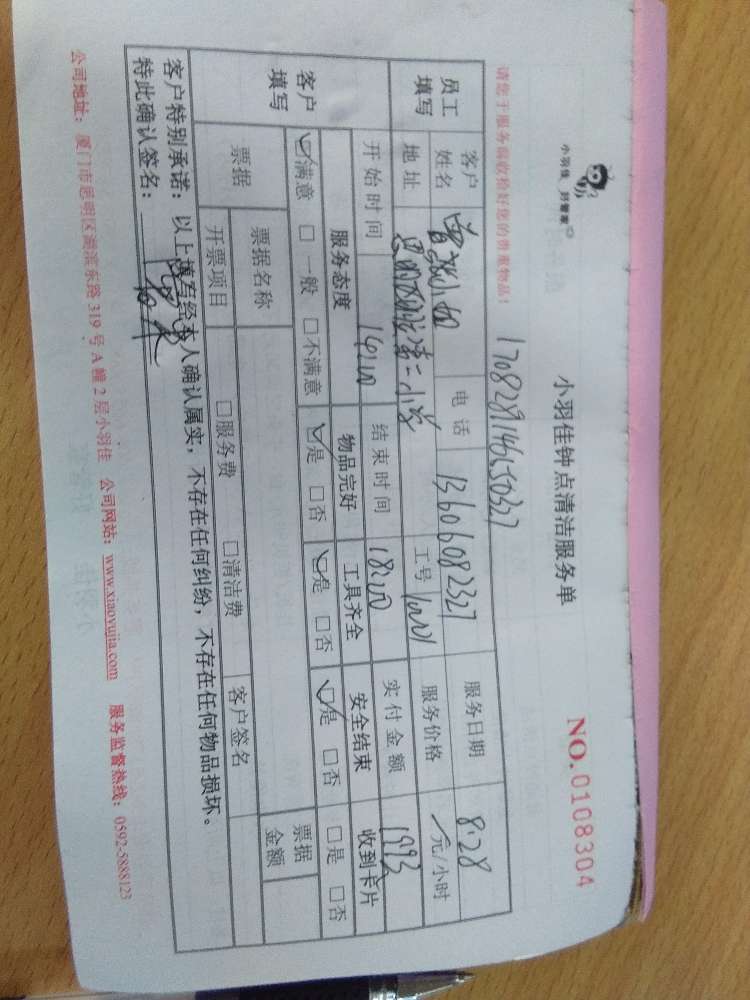 小羽佳 好管家
小羽佳钟点清洁服务单
NO.0108304
请您于服务前收捡好您的贵重物品！
170828114650327
员工填写
客户姓名 曾 小姐 电话 13606082327 服务日期 8.28
地址 工号 服务价格 元/小时
开始时间 14:00 结束时间 18:00 实付金额 1993
客户填写
服务态度 物品完好 工具齐全 安全结束 收到卡片
☑满意 □一般 □不满意 ☑是 □否 ☑是 □否 ☑是 □否 □是 □否
票据 票据名称 票据金额
开票项目 □服务费 □清洁费 客户签名
客户特别承诺：以上填写经本人确认属实，不存在任何纠纷，不存在任何物品损坏。
特此确认签名：
公司地址：厦门市思明区湖滨东路319号A幢2层小羽佳 公司网站：www.xiaoyujia.com 服务监督热线：0592-5888123